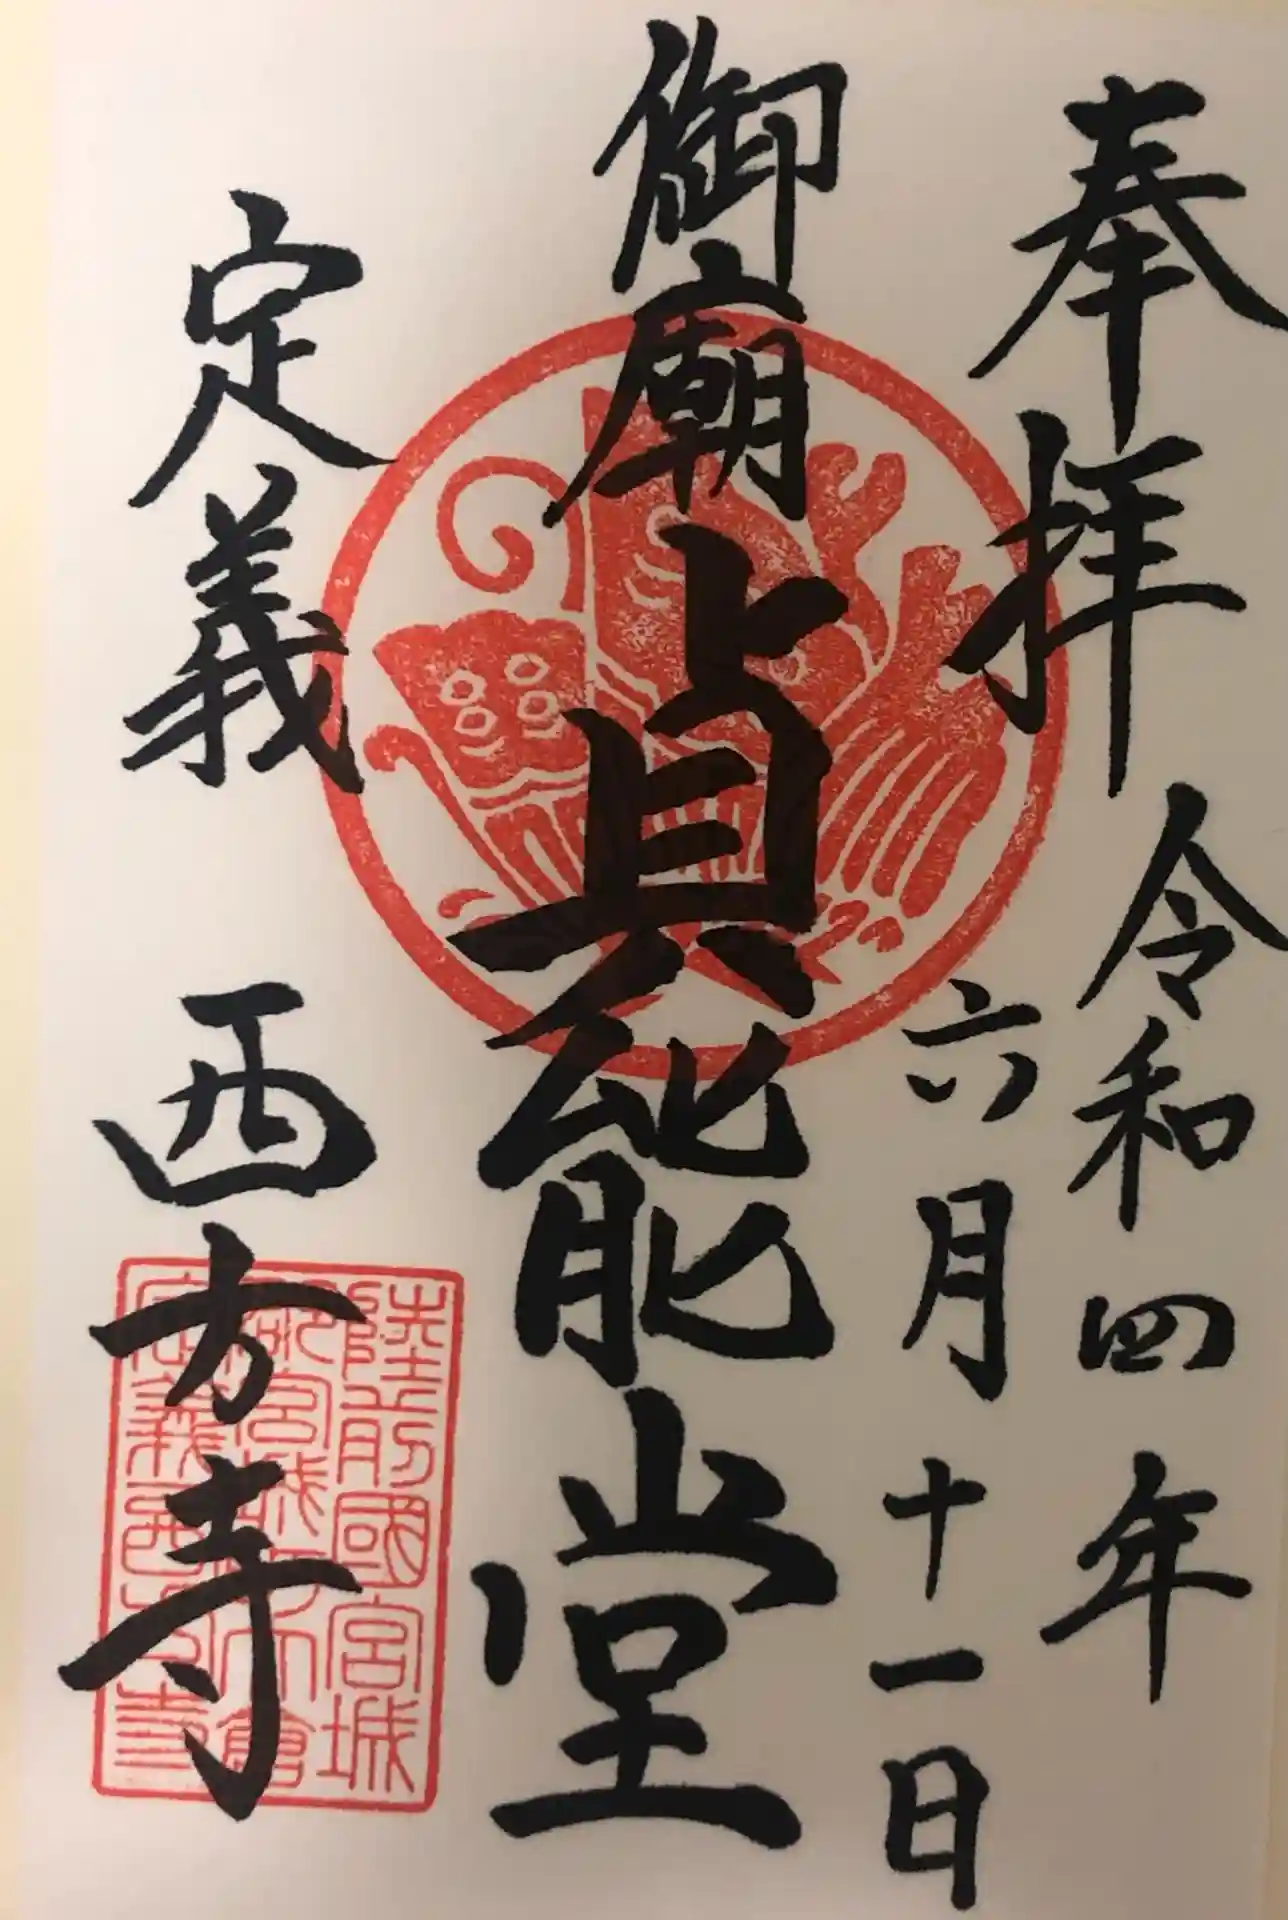 奉拝
令和四年
六月十一日
御廟
貞能堂
定義 西方寺
陸前國宮城